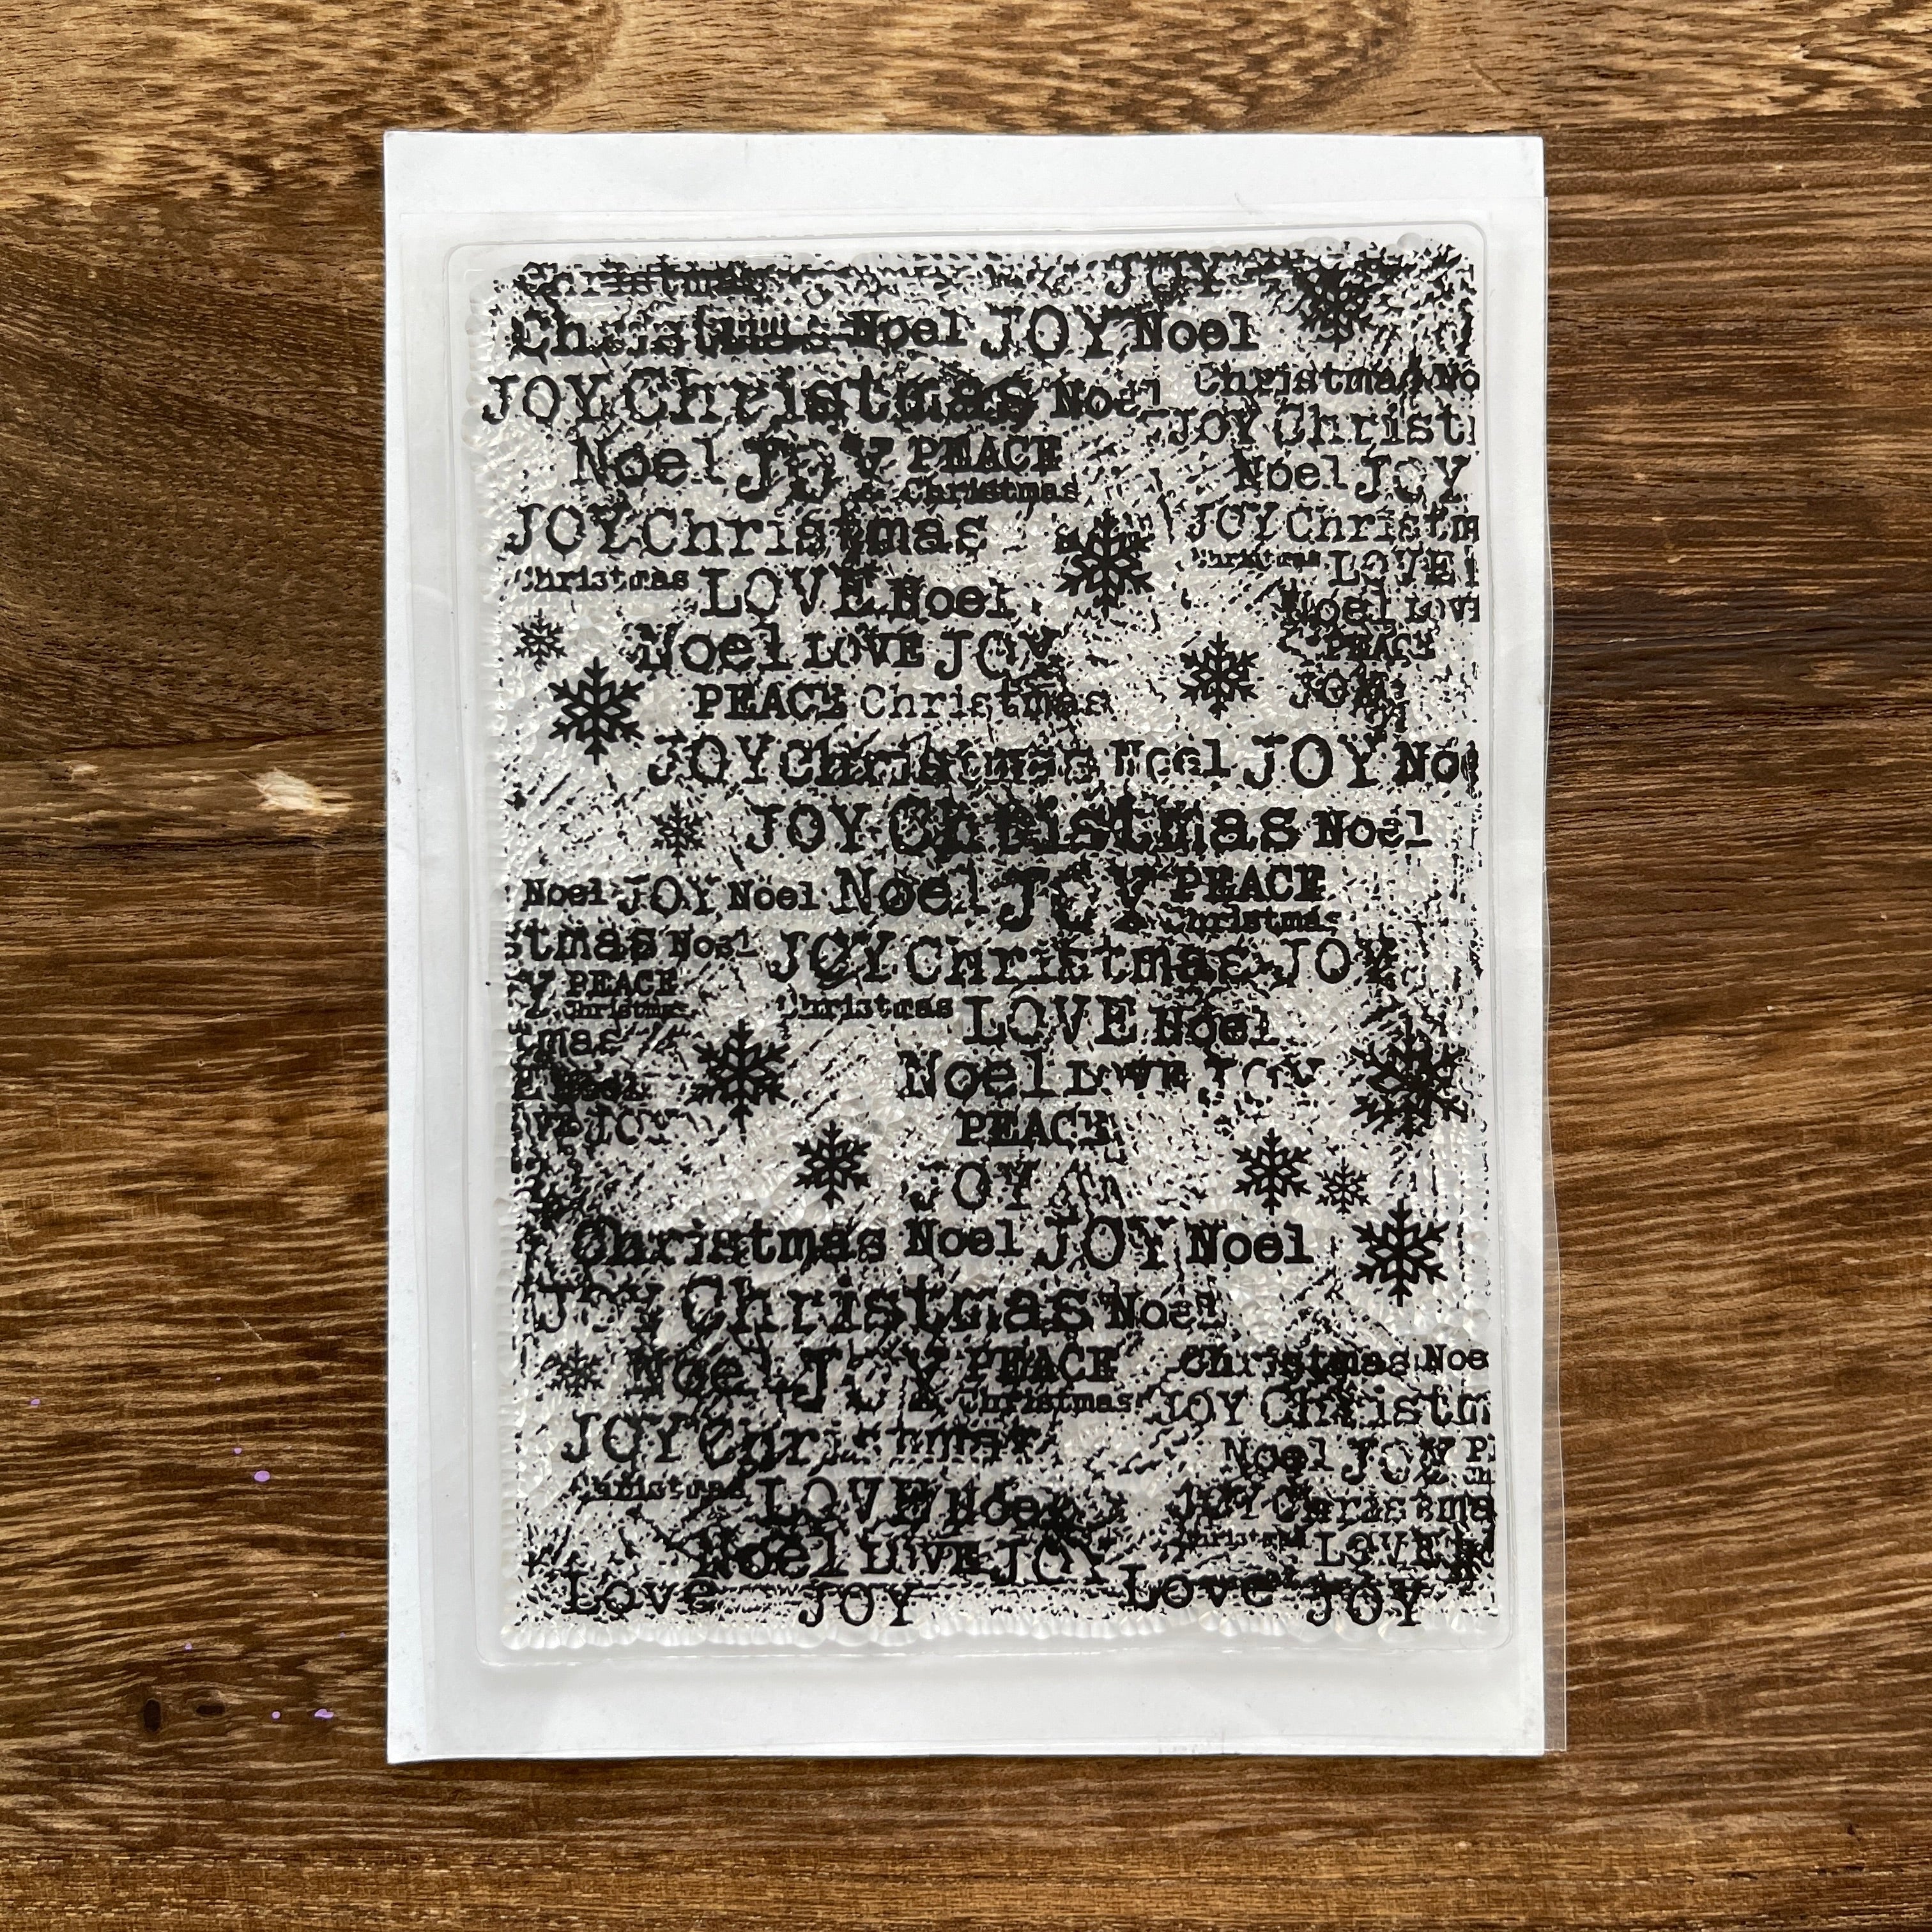 Christmas JOY
Christmas Noel JOY Noel
JOY Christmas Noel Christmas No
JOY Christ
Noel JOY PEACE Noel JOY
Christmas
JOY Christmas JOY Christm
Christmas LOVE Noel Christmas LOVE
Noel LOVE
Noel LOVE JOY PEACE
PEACE Christmas JOY
JOY Christmas Noel JOY Noe
JOY Christmas Noel
Noel JOY Noel Noel JOY PEACE
Christmas
tmas Noel JOY Christmas JOY
Y PEACE
Christmas Christmas LOVE Noel
mas
Noel Noel LOVE JOY
VE JOY PEACE
JOY
Christmas Noel JOY Noel
JOY Christmas Noel
Noel JOY PEACE Christmas Noe
Christmas JOY Christm
JOY Christmas Noel JOY P
Ch
Christmas LOVE Noel JOY Christma
Noel LOVE JOY Christmas LOVE
Love JOY Love JOY